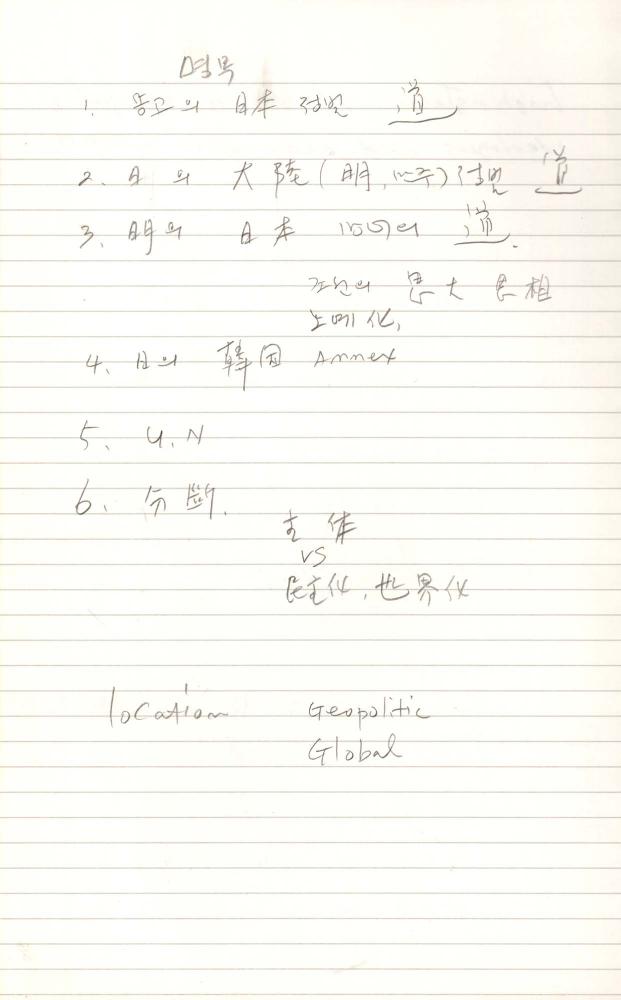 명목
1. 몽고의 日本 정벌 道
2. 日의 大陸(明, 만주)정벌 道
3. 明의 日本 道.
조선의 思大 良相
노예化,
4. 日의 韓国 Annex
5. U.N
6. 分斷.
主体
vs
民主化, 世界化
location Geopolitic
Global